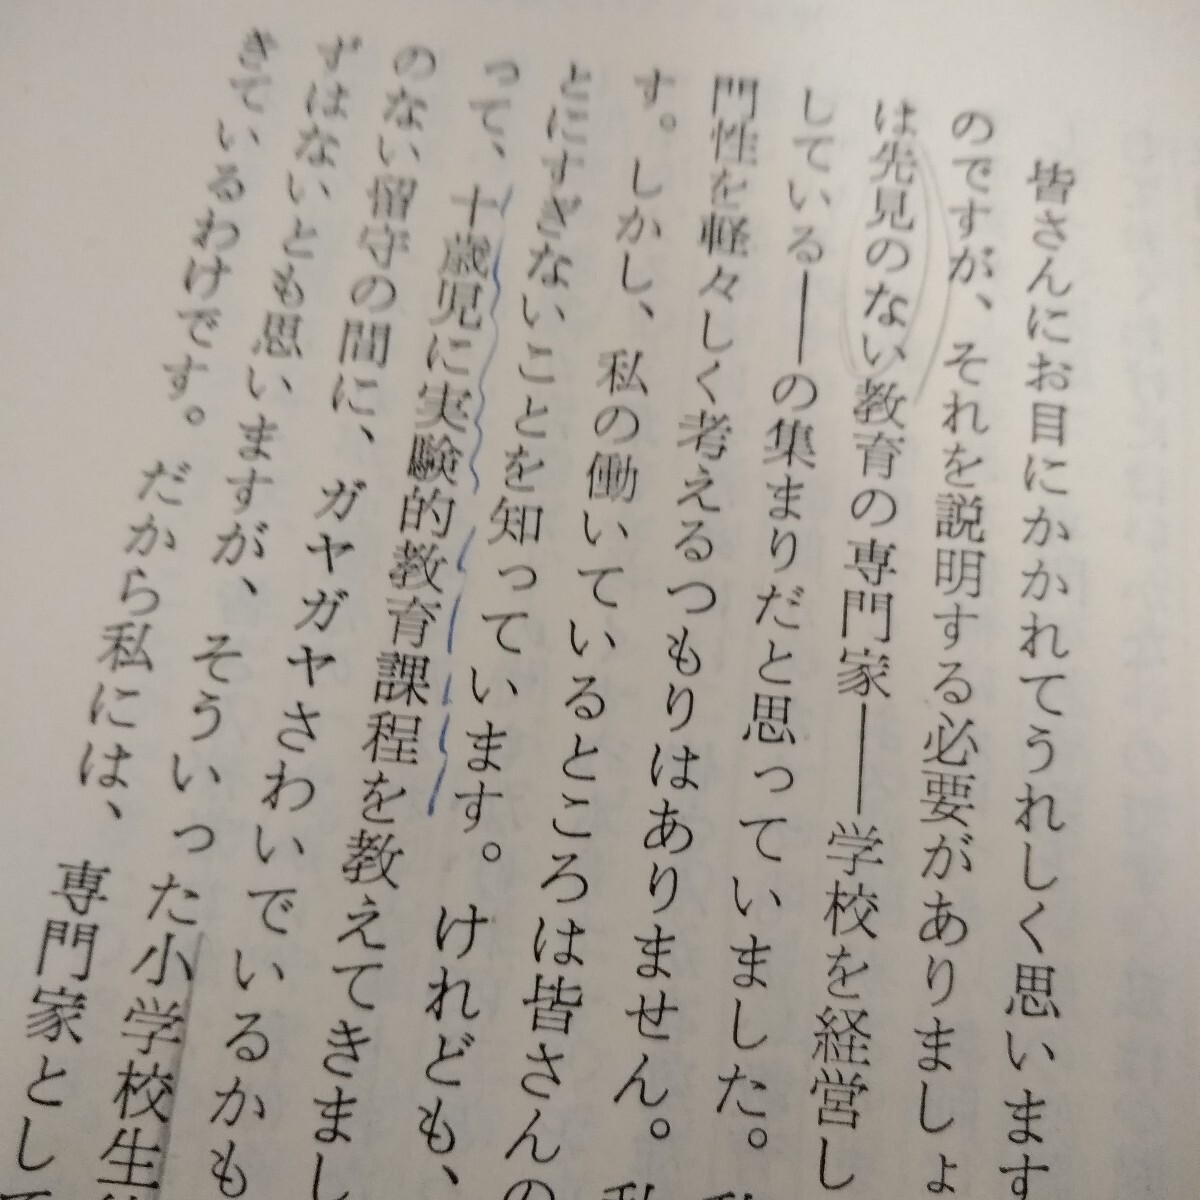 皆さんにお目にかかれてうれしく思います
のですが、それを説明する必要がありましょ
は先見のない教育の専門家――学校を経営し
している――の集まりだと思っていました。
門性を軽々しく考えるつもりはありません。
す。しかし、私の働いているところは皆さんの
とにすぎないことを知っています。けれども、
って、十歳児に実験的教育課程を教えてきまし
のない留守の間に、ガヤガヤさわいでいるかも
ずはないとも思いますが、そういった小学校生
きているわけです。だから私には、専門家として